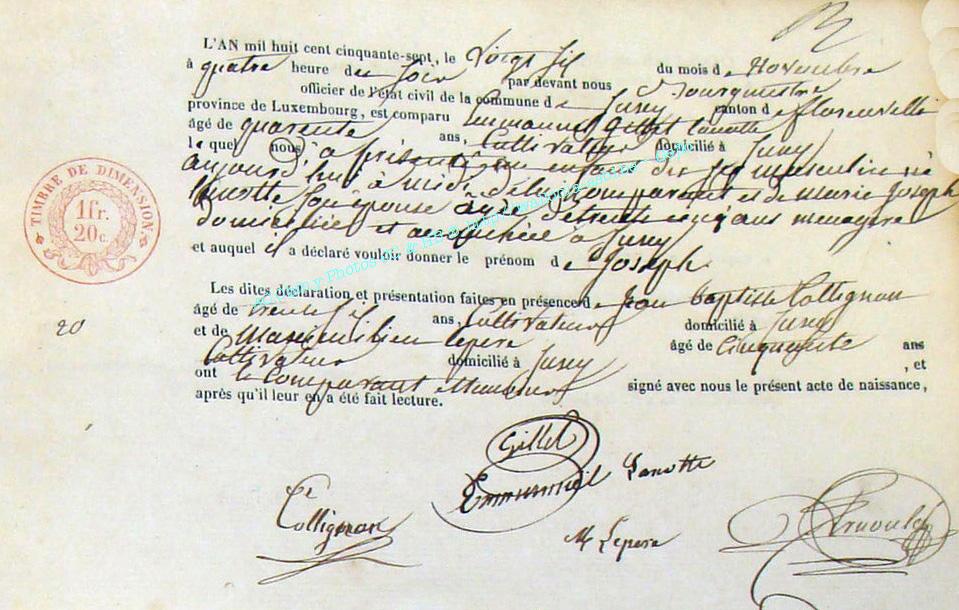 L'AN mil huit cent cinquante-sept, le Vingt Six du mois de Novembre
à quatre heure du Soir par devant nous Bourgmestre
officier de l'état civil de la commune de Jusey canton de florenville
province de Luxembourg, est comparu Emmanuel Gillet Lanotte
âgé de quarente ans, Cultivateur domicilié à Jusey
le quel nous a présenté un enfant du Sex masculin né
aujourd'hui à midi de lui Comparant et de Marie Joseph
Lanotte Son épouse agée de trente cinq ans menagere
domiciliée et accouchée à Jusey
et auquel il a déclaré vouloir donner le prénom de Joseph
Les dites déclaration et présentation faites en présence de Jean Baptiste Collignon
âgé de trente Six ans, Cultivateur domicilié à Jusey
et de Maximilien Lepere âgé de Cinquante ans
Cultivateur domicilié à Jusey , et
ont le Comparant et temoins signé avec nous le présent acte de naissance,
après qu'il leur en a été fait lecture.
TIMBRE DE DIMENSION
1 fr.
20 c.
20
Gillet
Emmanuel Lanotte
Collignon
M Lepere